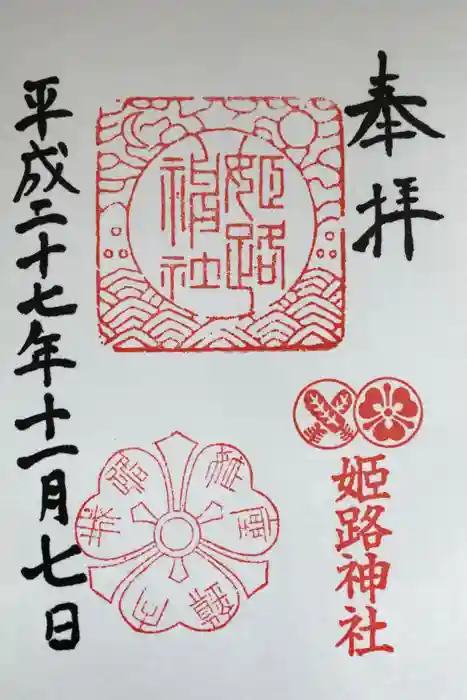 奉拝
姫路神社
姫路神社
平成二十七年十一月七日